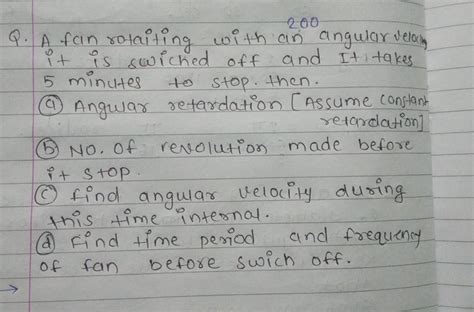 200
Q. A fan rotaiting with an angular velocity
it is swiched off and It takes
5 minutes to stop. then.
(a) Angular retardation [Assume constant
retardation]
(b) No. of revolution made before
it stop.
(c) find angular velocity during
this time internal.
(d) Find time period and frequency
of fan before swich off.
→